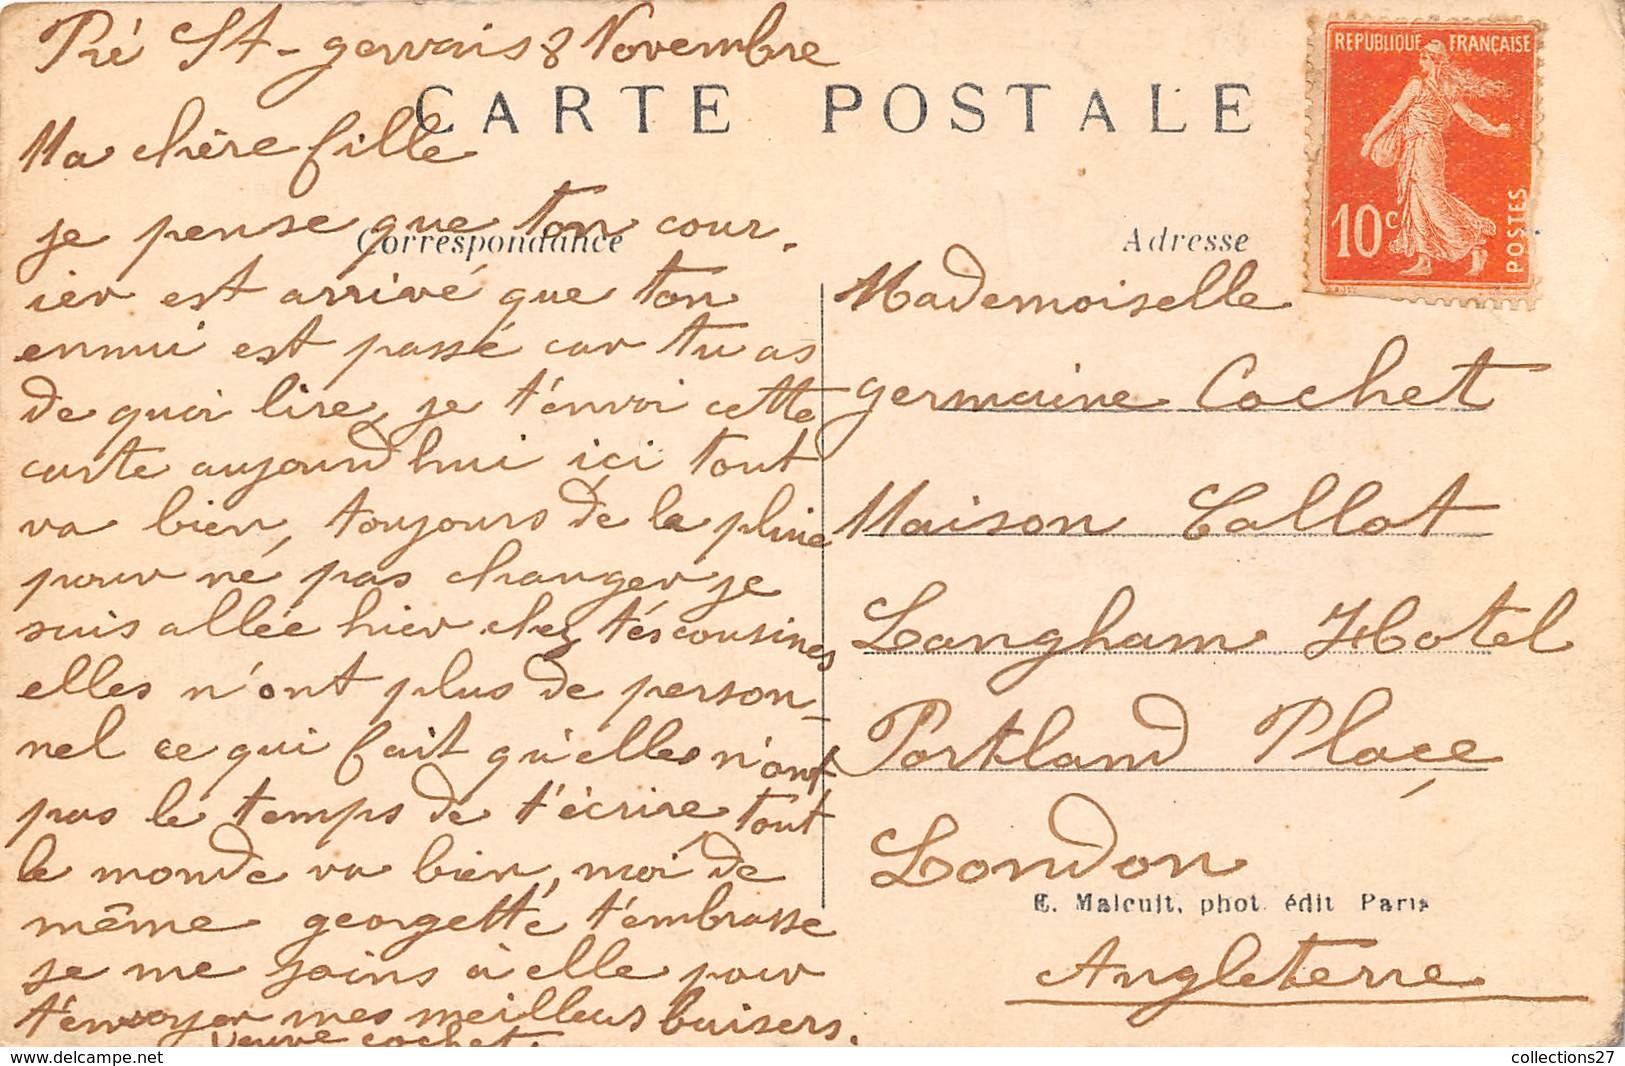 Pré St-gervais 8 Novembre
CARTE POSTALE
REPUBLIQUE FRANÇAISE
10c
POSTES
Ma chère fille
je pense que ton cour.
ier est arrivé que ton
ennui est passé car tu as
de quoi lire, je t'envoi cette
carte aujourd hui ici tout
va bien, toujours de la pluie
pour né pas changer je
suis allée hier chez tés cousines
elles n'ont plus de person-
nel ce qui fait qu'elles n'ont
pas le temps de t'écrire, tout
le monde va bien, moi de
même georgette t'embrasse
je me joins à elle pour
t'envoyer mes meilleurs baisers.
Veuve cochet.
Correspondance
Adresse
Mademoiselle
germaine Cochet
Maison Callot
Langham Hotel
Portland Place,
London
E. Malcuit, phot. édit Paris
Angleterre
collections27